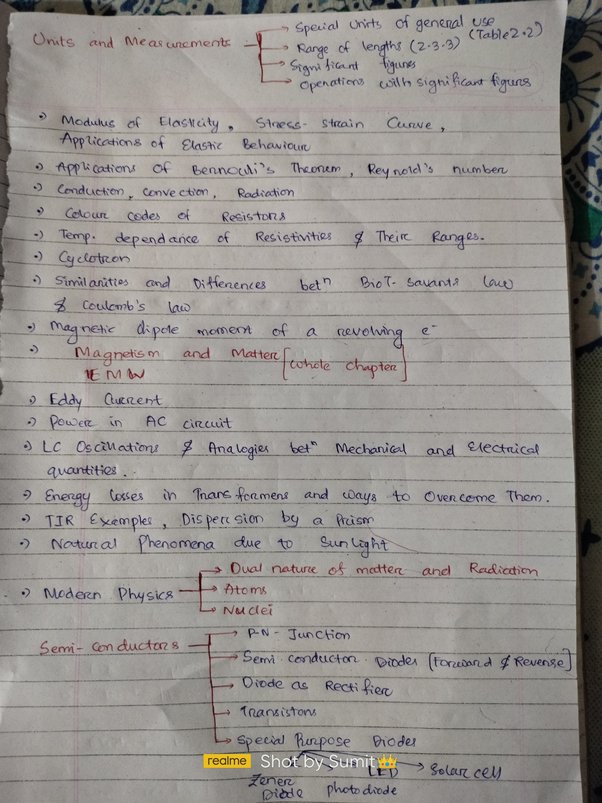 Units and Measurements
→ Special Units of general use (Table 2.2)
→ Range of lengths (2.3.3)
→ Significant figures
→ Operations with significant figures
•) Modulus of Elasticity, Stress-strain Curve,
Applications of Elastic Behaviour
•) Applications of Bernouli's Theorem, Reynold's number
•) Conduction, Convection, Radiation
•) Colour codes of Resistors
•) Temp. dependance of Resistivities & Their Ranges.
•) Cyclotron
•) Similarities and Differences betⁿ Biot-savarts law
& Coulomb's law
•) Magnetic dipole moment of a revolving e⁻
•) Magnetism and Matter [whole chapter]
EMW
•) Eddy Current
•) Power in AC circuit
•) LC Oscillations & Analogies betⁿ Mechanical and Electrical
quantities.
•) Energy losses in Transformers and ways to Overcome Them.
•) TIR Examples, Dispersion by a Prism
•) Natural Phenomena due to Sunlight
•) Modern Physics
→ Dual nature of matter and Radiation
→ Atoms
→ Nuclei
Semi-conductors
→ P-N-Junction
→ Semi conductor Diodes [Forward & Reverse]
→ Diode as Rectifier
→ Transistors
→ Special Purpose Diodes
Zener Diode
photodiode
LED
Solar cell
realme Shot by Sumit